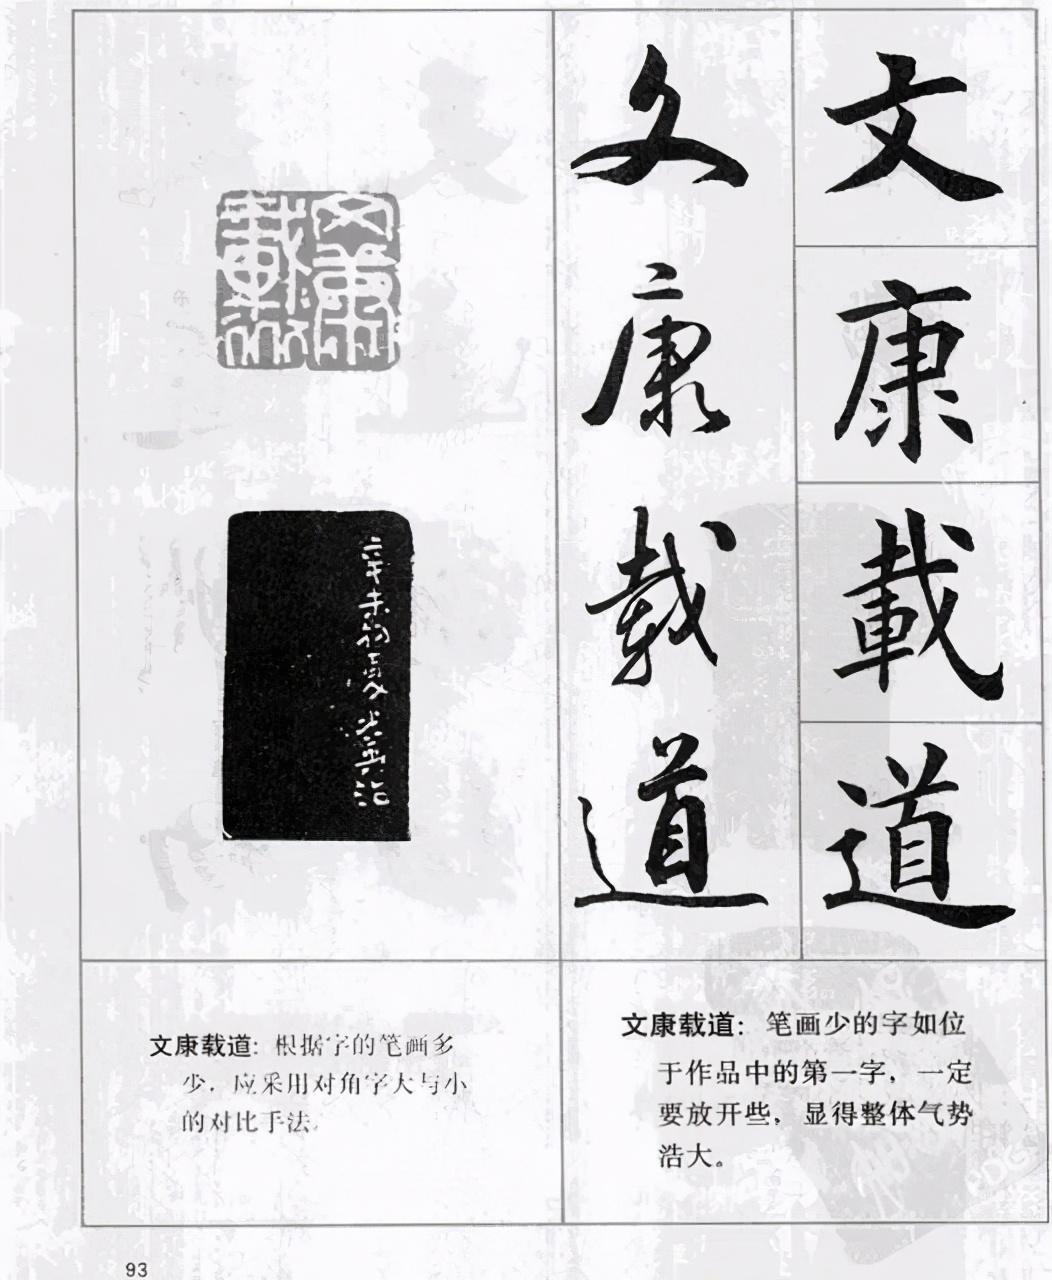 文
康
載
道
文
康
載
道
文康載道
辛未初夏
文康载道：笔画少的字如位
于作品中的第一字，一定
要放开些，显得整体气势
浩大。
文康载道：根据字的笔画多
少，应采用对角字大与小
的对比手法。
93